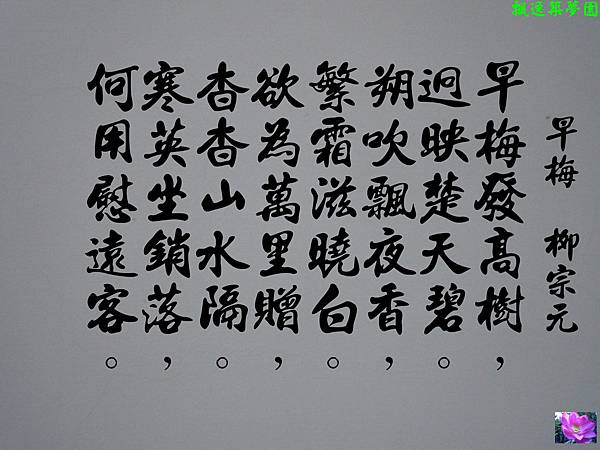 築夢園
早梅 柳宗元
早梅發高樹，
迥映楚天碧。
朔吹飄夜香，
繁霜滋曉白。
欲為萬里贈，
杳杳山水隔。
寒英坐銷落，
何用慰遠客。